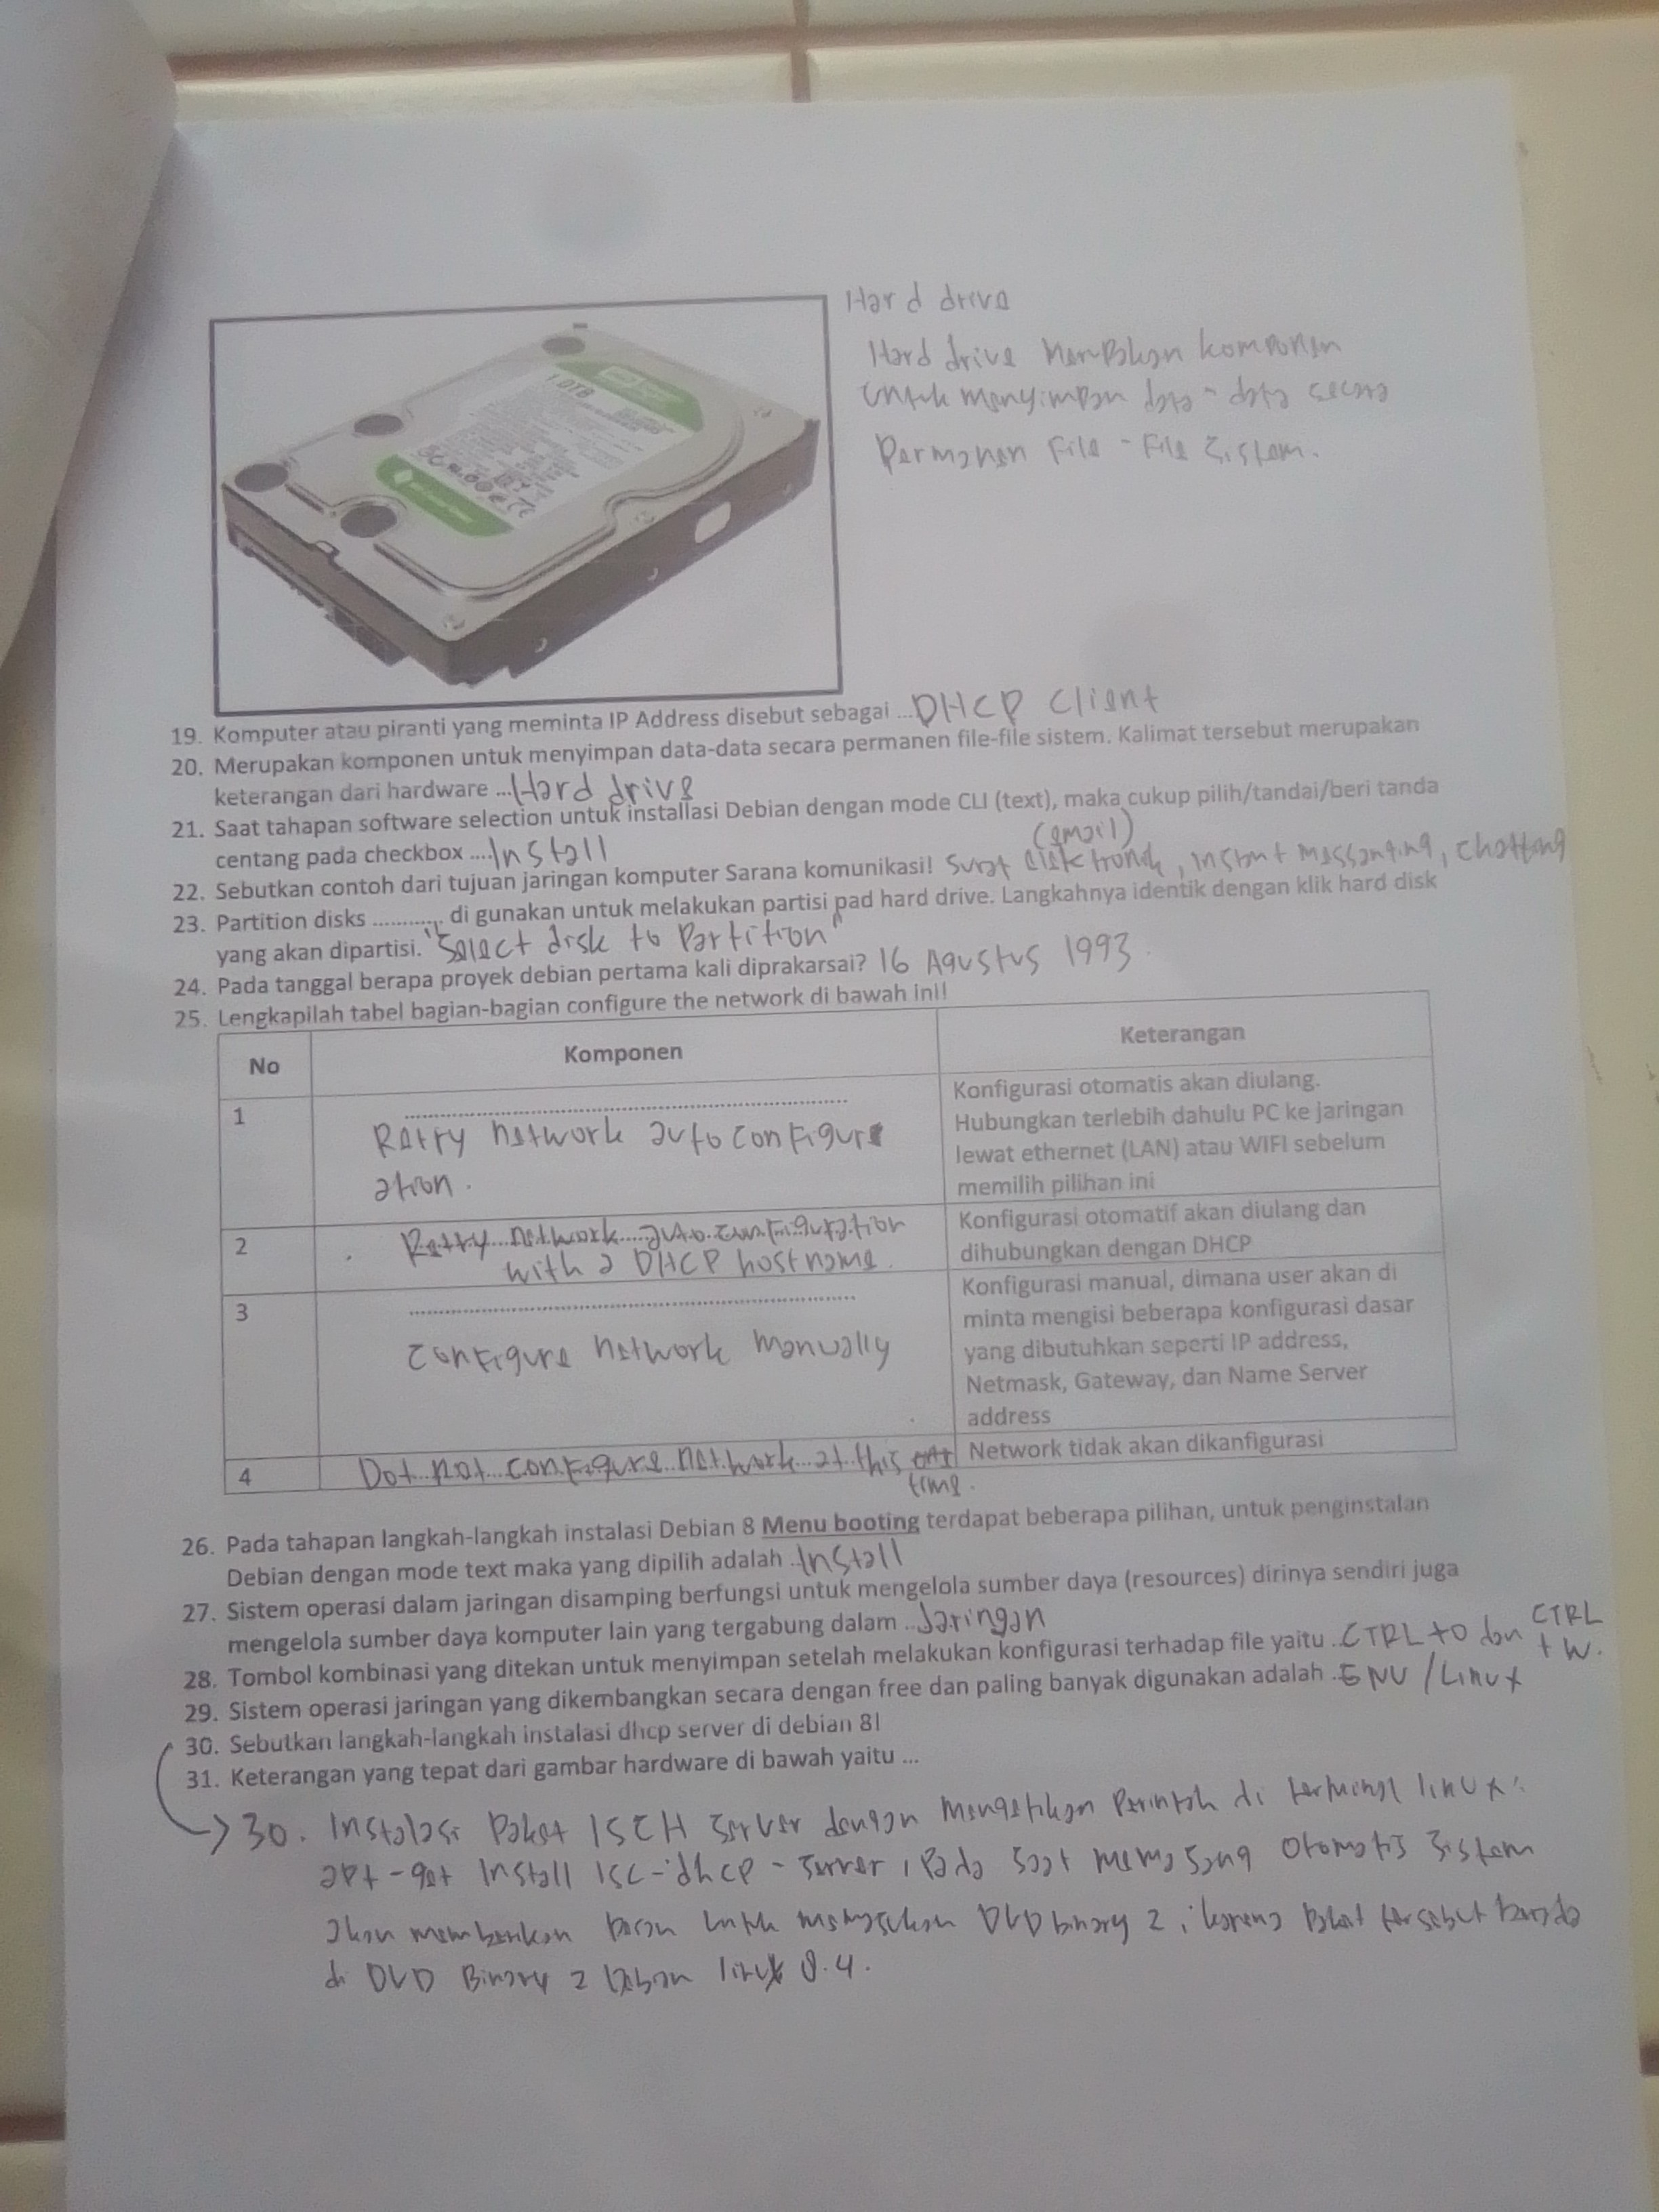 1.0TB
Hard drive
Hard drive Merupakan komponen
untuk menyimpan data - data secara
Permanen File - File Sistem.
19. Komputer atau piranti yang meminta IP Address disebut sebagai ... DHCP Client
20. Merupakan komponen untuk menyimpan data-data secara permanen file-file sistem. Kalimat tersebut merupakan
keterangan dari hardware ... Hard drive
21. Saat tahapan software selection untuk installasi Debian dengan mode CLI (text), maka cukup pilih/tandai/beri tanda
centang pada checkbox .... Install
(email)
22. Sebutkan contoh dari tujuan jaringan komputer Sarana komunikasi! Surat , Instant , Chatting
23. Partition disks ............ di gunakan untuk melakukan partisi pad hard drive. Langkahnya identik dengan klik hard disk
yang akan dipartisi. "Select disk to Partition"
24. Pada tanggal berapa proyek debian pertama kali diprakarsai? 16 Agustus 1993.
25. Lengkapilah tabel bagian-bagian configure the network di bawah ini!
No Komponen Keterangan
1 Retry network auto configure
ation.
Konfigurasi otomatis akan diulang.
Hubungkan terlebih dahulu PC ke jaringan
lewat ethernet (LAN) atau WIFI sebelum
memilih pilihan ini
2 Retry network auto configuration
with a DHCP hostname.
Konfigurasi otomatif akan diulang dan
dihubungkan dengan DHCP
3 Configure network Manually
Konfigurasi manual, dimana user akan di
minta mengisi beberapa konfigurasi dasar
yang dibutuhkan seperti IP address,
Netmask, Gateway, dan Name Server
address
4 Dot not configure network at this
time.
Network tidak akan dikanfigurasi
26. Pada tahapan langkah-langkah instalasi Debian 8 Menu booting terdapat beberapa pilihan, untuk penginstalan
Debian dengan mode text maka yang dipilih adalah .. Install
27. Sistem operasi dalam jaringan disamping berfungsi untuk mengelola sumber daya (resources) dirinya sendiri juga
mengelola sumber daya komputer lain yang tergabung dalam .. Jaringan
28. Tombol kombinasi yang ditekan untuk menyimpan setelah melakukan konfigurasi terhadap file yaitu .. CTRL + O dan CTRL
+ W.
29. Sistem operasi jaringan yang dikembangkan secara dengan free dan paling banyak digunakan adalah .. GNU / Linux
30. Sebutkan langkah-langkah instalasi dhcp server di debian 8!
31. Keterangan yang tepat dari gambar hardware di bawah yaitu ...
30. Instalasi Paket Server dengan Mengetikan Perintah di terminal linux :
apt - get Install isc - dhcp - server , Pada saat memasang otomatis sistem
akan memberikan untuk DVD binary 2 , karena Paket tersebut berada
di DVD Binary 2 linux 8.4.